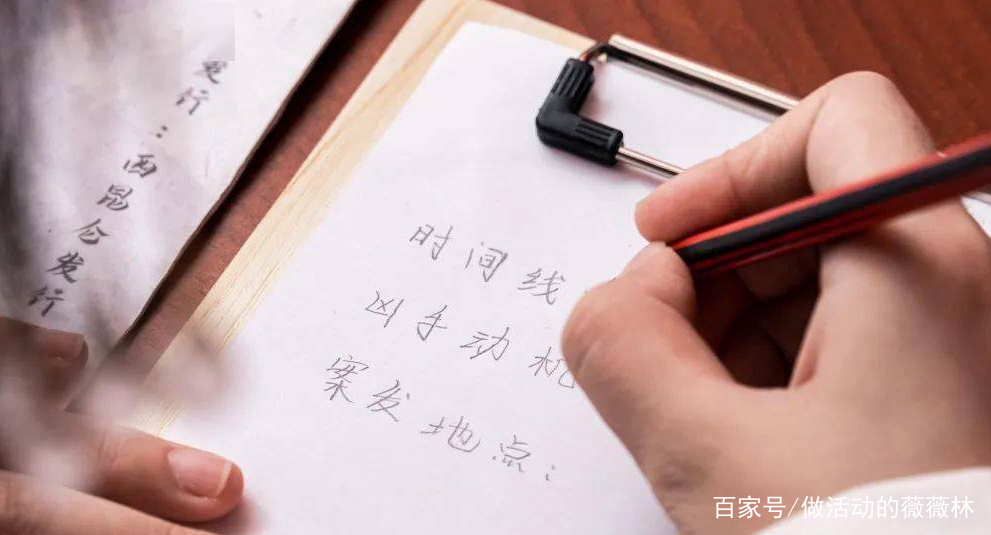 发行：西昆仑发行
时间线
凶手动机
案发地点：
百家号/做活动的薇薇林